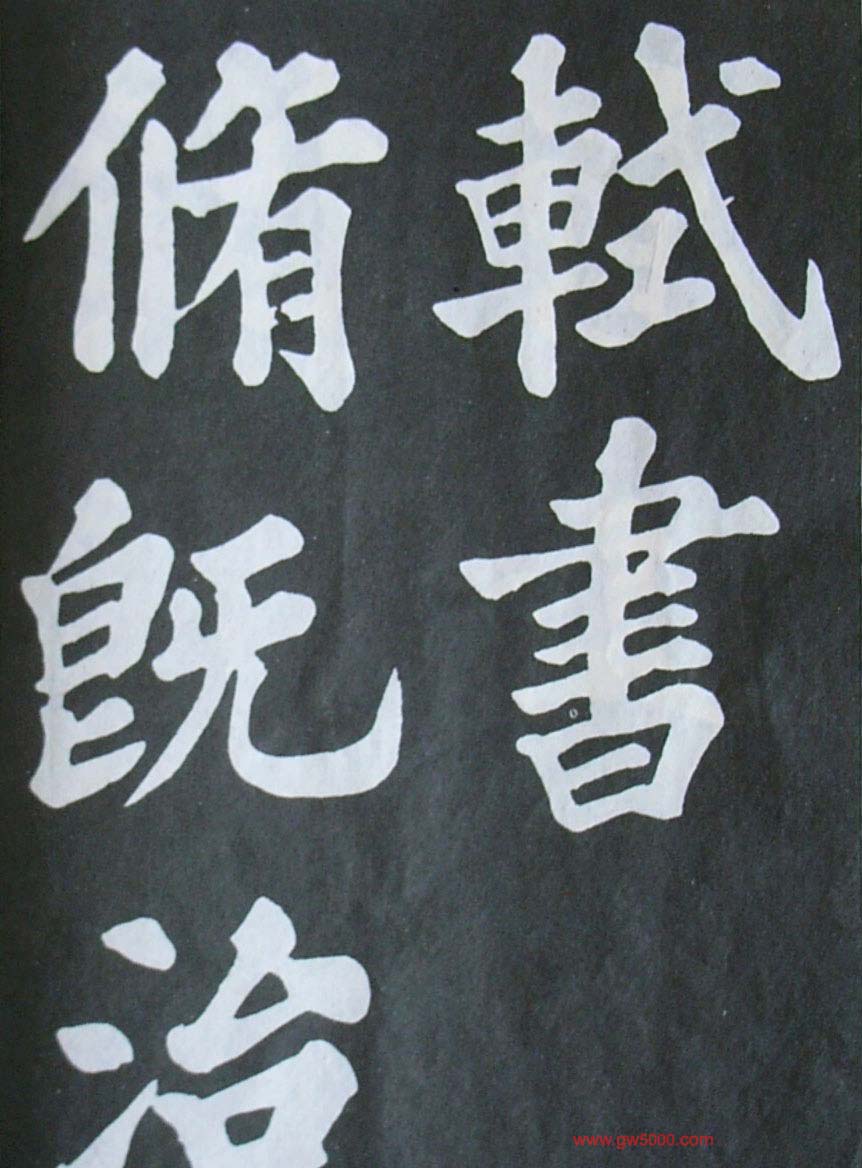 軾書
脩既治
www.gw5000.com